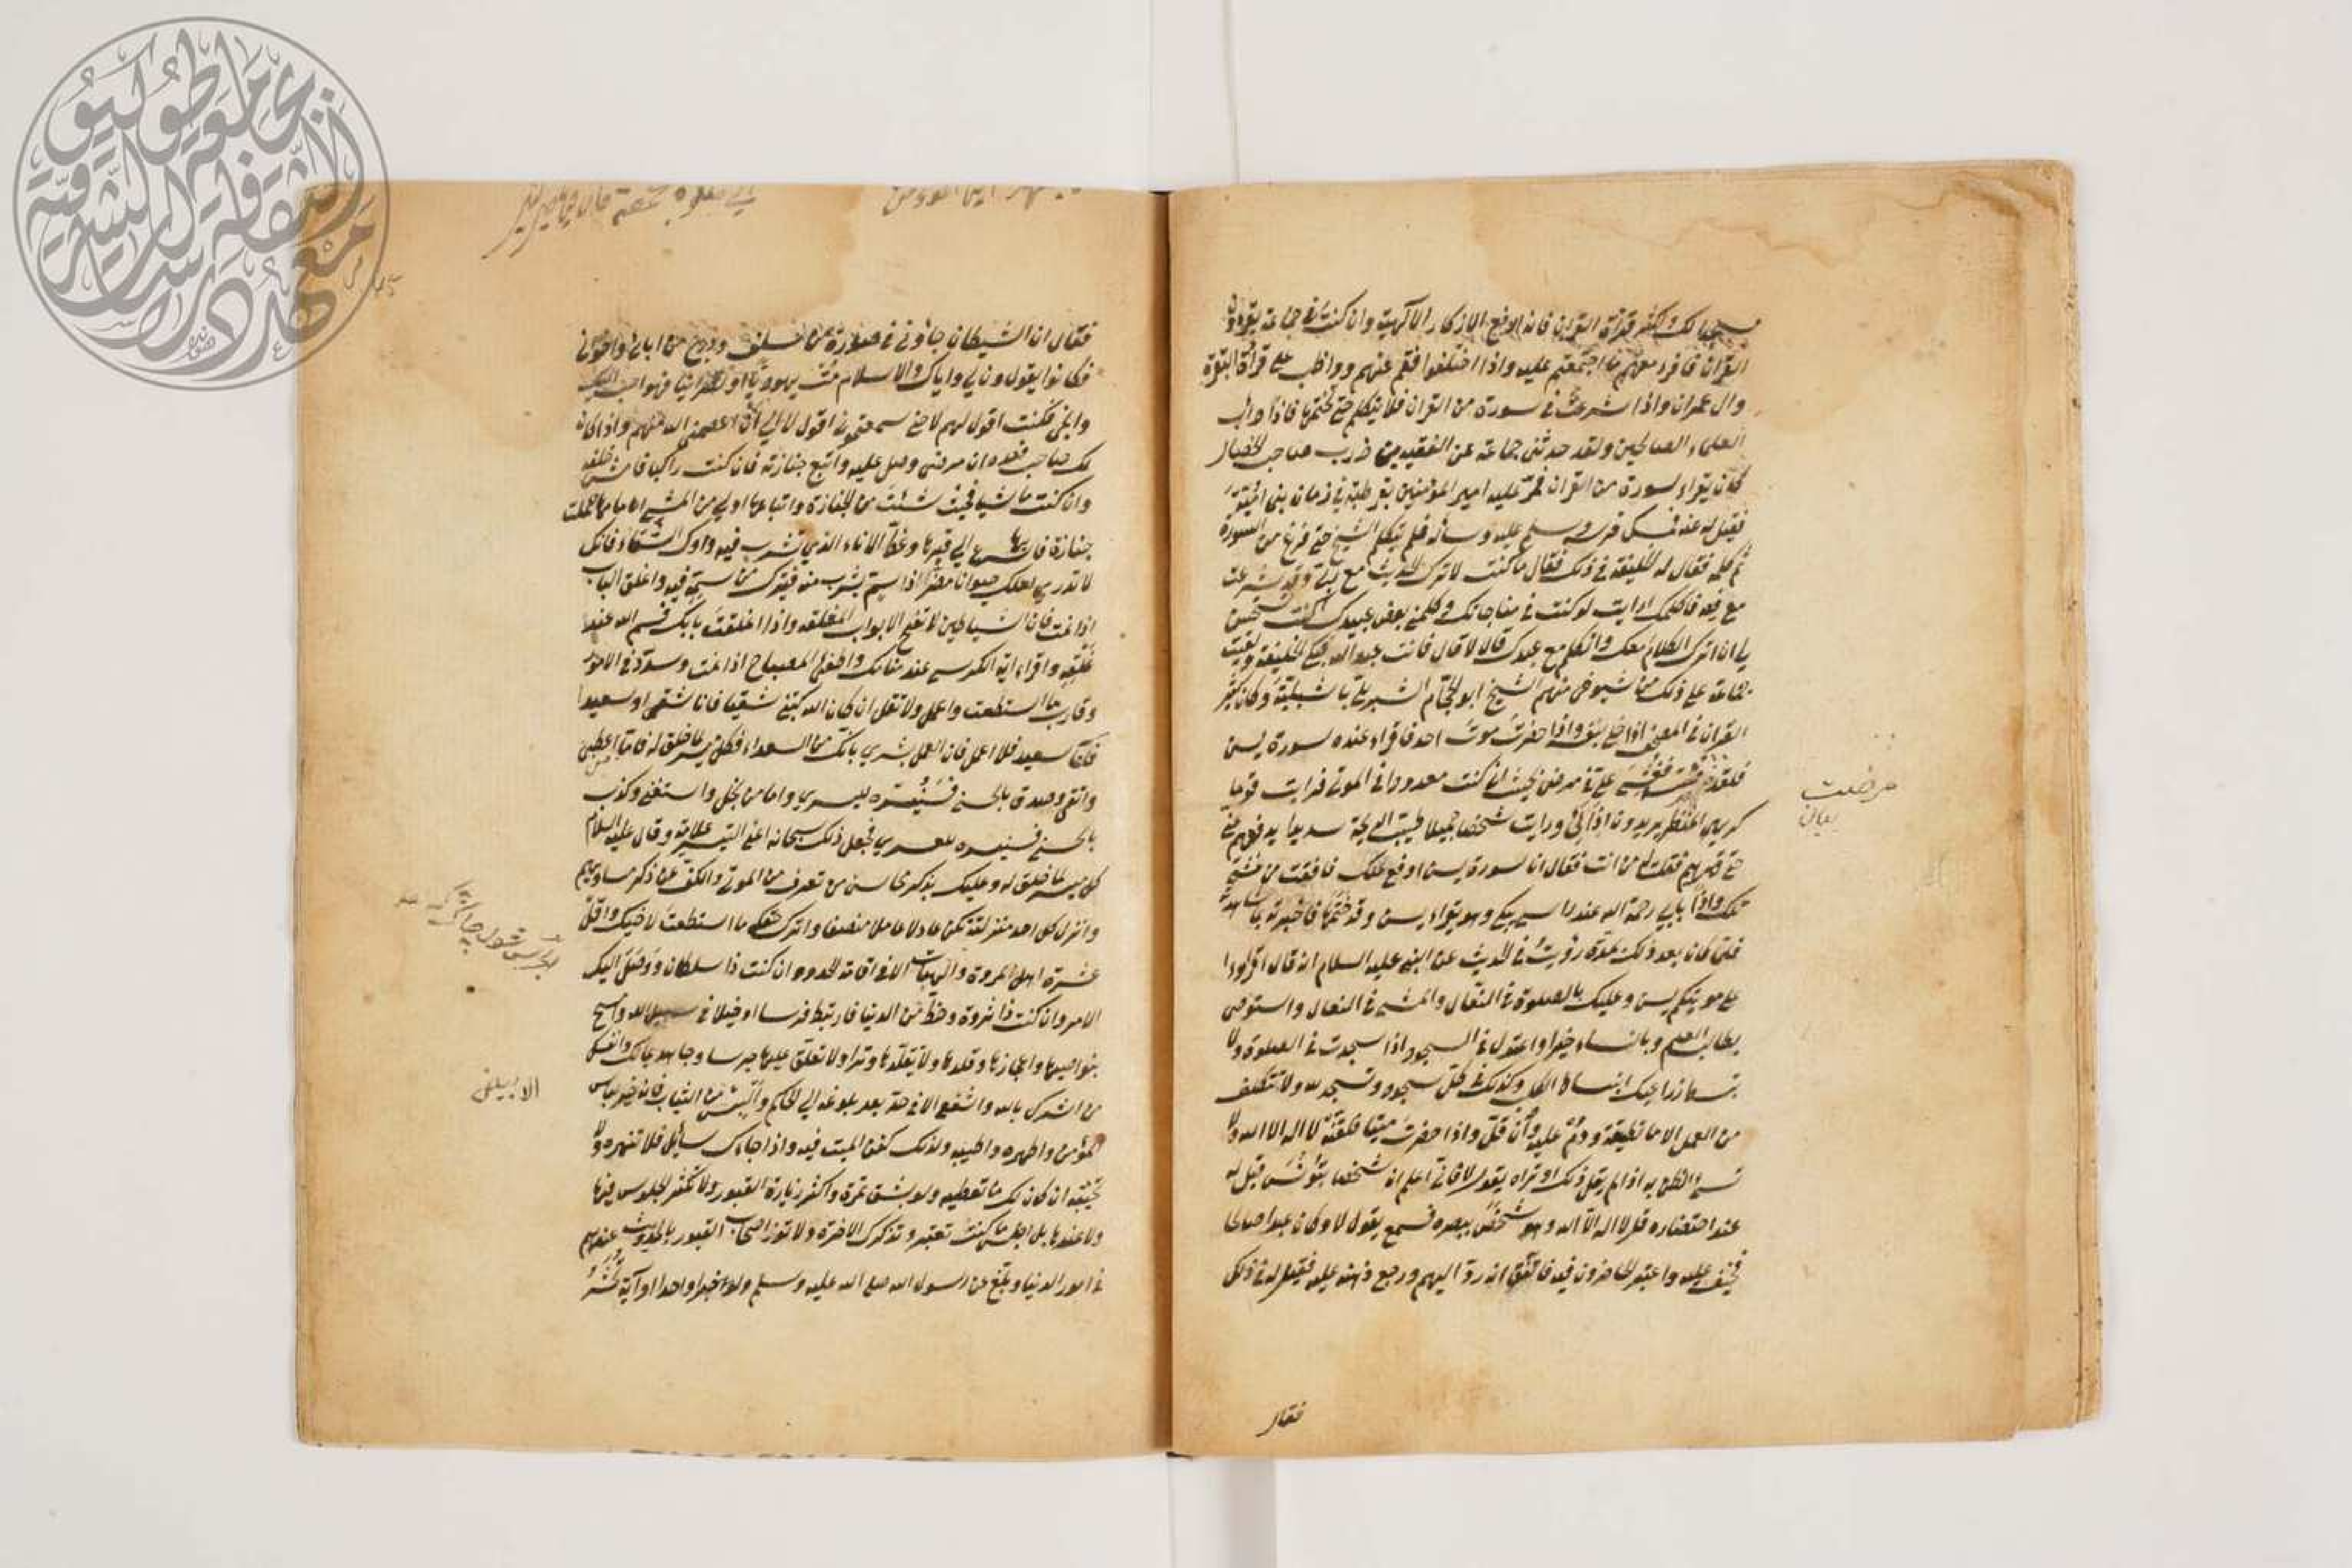 لك واكثر قراءة القران فانه ارفع الاذكار الالهية وان كنت في جماعة يقرؤن
القران فاقرء معهم ما اجتمعتم عليه واذا اختلفوا فقم عنهم وواظب على قراءة البقرة
وال عمران واذا شرعت في سورة من القران فلا تتكلم حتى تختمها فاذا داب
العلماء الصالحين ولقد حدثني جماعة عن الفقيه من ذرب صاحب الخصال
كان يقراء سورة من القران فمر عليه امير المؤمنين بقرطبة في زمان بني امية
فقيل له عنه فمسك فرسه وسلم عليه وساله فلم يتكلم الشيخ حتى فرغ من السورة
ثم كلمه فقال له الخليفة في ذلك فقال ما كنت لاترك الحديث مع وقد شرعت
مع فيه فاكلمك ارايت لو كنت في مناجاتك وكلمني بعض عبيدك اكنت تحسن
لي ان اترك الكلام معك واتكلم مع عبدك قال لا قال فانت عبد الله فبكى الخليفة ولقيت
جماعة على ذلك من شيوخي منهم الشيخ ابو الحجاج الشبربلي باشبيلية وكان كثير
القران في المصحف اذا خلى بنفسه واذا حضرت موت احد فاقراء عنده سورة يس
فلقد مرضت فغشي علي في مرضي بحيث اني كنت معدودا في الموتى فرايت قوما
كريهي المنظر يريدون اذائي ورايت شخصا جميلا طيب الريحة سديدا يدفعهم عني
حتى قهرهم فقلت له من انت فقال انا سورة يس ادفع عنك فافقت من غشيتي
تلك واذا بابي رحمة الله عند راسي يبكي وهو يقراء يس وقد ختمها فاخبرته بما شاهدته
فلما كان بعد ذلك بمدة رويت في الحديث عن النبي عليه السلام انه قال اقرؤا
على موتيكم يس وعليك بالصلوة في النعال والمشي في النعال واستوص
بطالب العلم وبالنساء خيرا واعتدل في السجود اذا سجدت في الصلوة ولا
تبسط ذراعيك انبساط الكلب وكذلك في كل سجود وتسجد لله ولا تتكلف
من العمل الا ما تطيقه ودم عليه وان قل واذا حضرت ميتا فلقنه لا اله الا الله ولا
تسئ الظن به اذا لم يقل ذلك او تراه يقول لا فاني اعلم ان شخصا بتونس قيل له
عند احتضاره قل لا اله الا الله وهو شخص ببصره فسمع يقول لا وكان عبدا صالحا
فخيف عليه واعتبر الحاضرون فيه فاتفق انه رد اليهم ورجع ذهنه عليه فقيل له في ذلك
فقال
مرضت
فقال ان الشيطان جاؤني في صورة من سلف ودرج من ابائي واخوتي
فكانوا يقولون لي واياك والاسلام مت يهوديا او نصرانيا فهو احب اليك
وانجى فكنت اقول لهم لا حتى سمعتموني اقول لا لا الى ان عصمني الله منهم واذا كان
لك صاحب فعده ان مرض وصل عليه واتبع جنازته فان كنت راكبا فامش خلفه
وان كنت ماشيا فحيث شئت من الجنازة واتباعها اولى من المشي امامها واذا حملت
جنازة فاسرع بها الى قبرها وغط الاناء الذي تشرب فيه واوك السقاء فانك
لا تدري لعلك حيوانا مضرا اذا سم يشرب منه فيترك من سمه فيه واغلق الباب
اذا نمت فان الشياطين لا تفتح الابواب المغلقة واذا اغلقت بابك فسم الله عند
غلقه واقراء اية الكرسي عند منامك واطفئ المصباح اذا نمت وسدد في الامور
وقارب ما استطعت واعمل ولا تقل ان كان الله كتبني شقيا فانا شقي او سعيدا
فانا سعيد فلا اعمل فان العمل بشرى بانك من السعداء فكل ميسر لما خلق له فاما من اعطى
واتقى وصدق بالحسنى فسنيسره لليسرى واما من بخل واستغنى وكذب
بالحسنى فسنيسره للعسرى فجعل ذلك سبحانه اعني التيسير علامة وقال عليه السلام
كل ميسر لما خلق له وعليك بذكر محاسن من تعرف من الموتى والكف عن ذكر مساويهم
وانزل كل احد منزلته تكن عادلا عاملا منصفا واترك حقك ما استطعت لاخيك واقل
عثرة اهل المروة والهيبات الا في اقامة الحدود ان كنت ذا سلطان ووصل اليك
الامر وان كنت ذا ثروة وحظ من الدنيا فارتبط فرسا او خيلا في سبيل الله وامسح
بنواصيها واعجازها وقلدها ولا تقلدها وترا ولا تعلق عليها جرسا وجاهد بمالك ونفسك
من اشرك بالله واشفع الا في حد بعد بلوغه الى الحاكم والبس من الثياب فانه خير لباس
المؤمن واطهره واطيبه ولذلك كفن الميت فيه واذا جاءك سائل فلا تنهره ولا
تخيبه ان كان لك ما تعطيه ولو بشق تمرة واكثر زيارة القبور ولا تكثر الجلوس فيها
ولا عندها بل اجلس ما كنت تعتبر وتذكرك الاخرة ولا تؤذ اصحاب القبور بالحديث عندهم
في امور الدنيا وبلغ عن رسول الله صلى الله عليه وسلم ولو خبرا واحدا او آية
الابيض
جامعة طوكيو
معهد دراسات الثقافة الشرقية